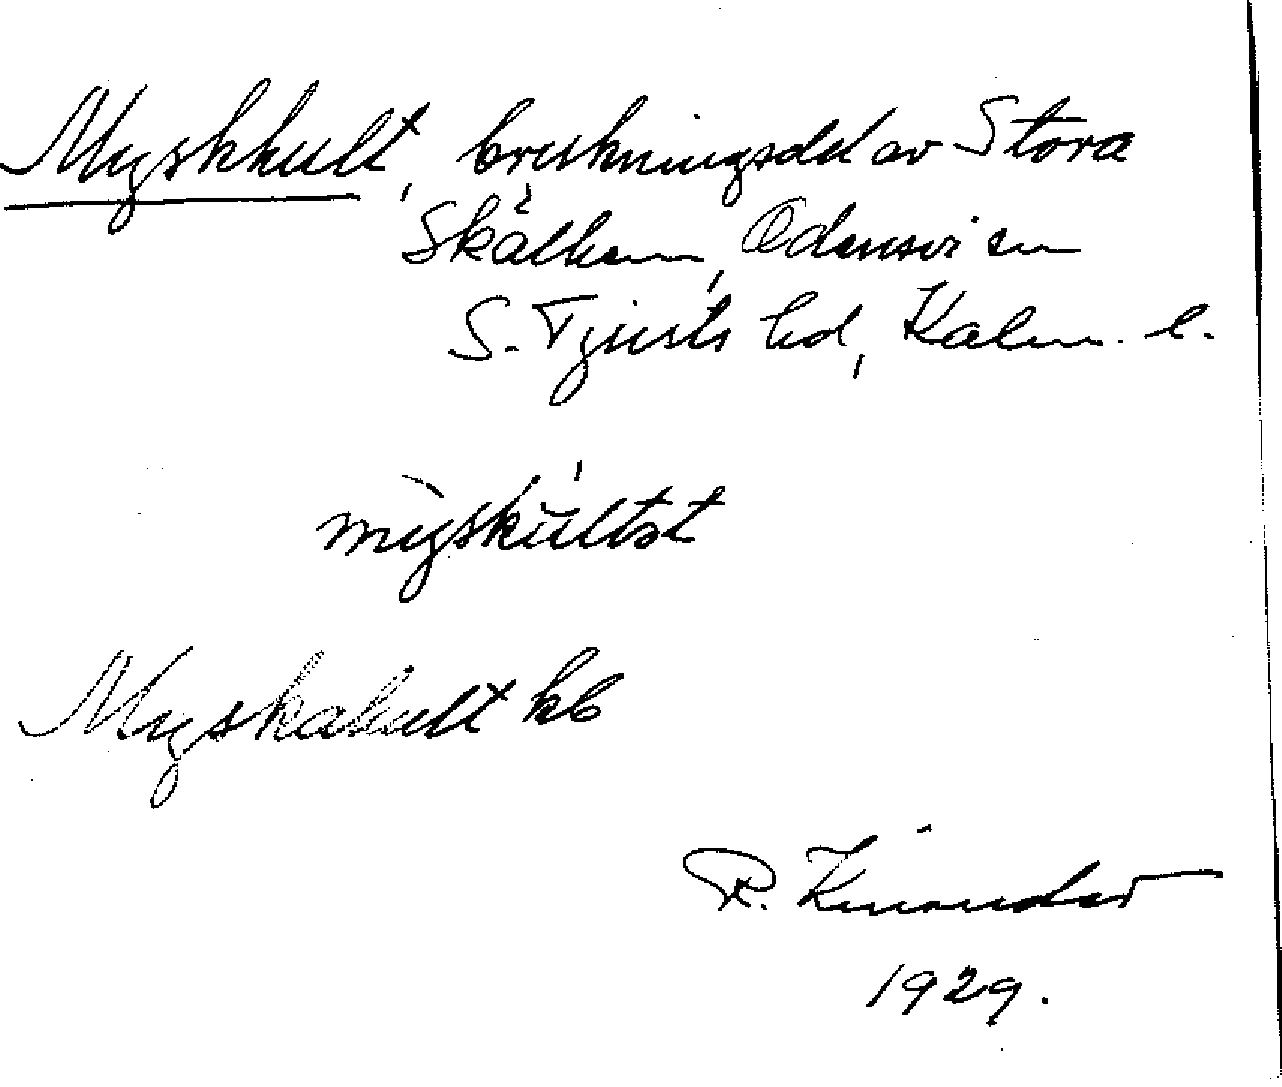 Myskhult, brukningsdel av Stora
Skälhem, Odensvi sn
S. Tjusts hd, Kalm. l.
mỳskúltət
Myskahult kb
R. Kinander
1929.